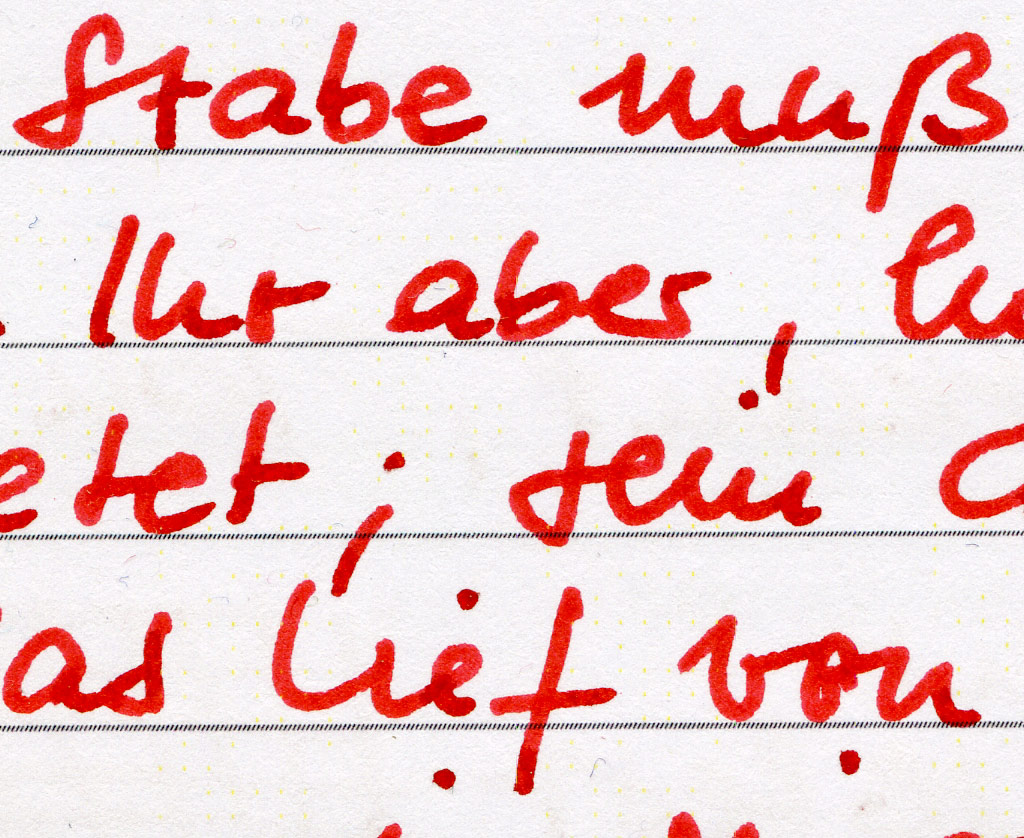 Stabe muß
. Ihr aber,
etet; sein
as lief von